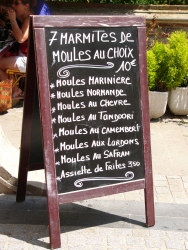 7 MARMITES DE
MOULES AU CHOIX
10€
MOULES MARINIERE
MOULES NORMANDE
MOULES AU CHEVRE
MOULES AU TANDOORI
MOULES AU CAMEMBERT
MOULES AUX LARDONS
MOULES AU SAFRAN
ASSIETTE DE FRITES 3,50